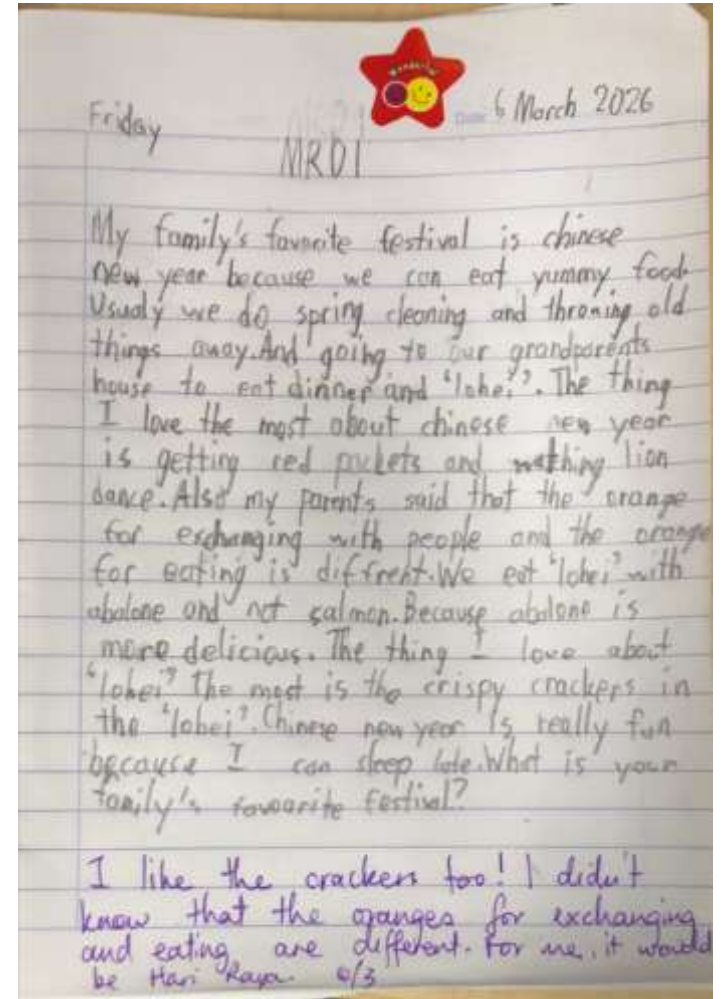 Wonderful
Friday
Date: 6 March 2026
MRD1
My family's favorite festival is chinese
new year because we can eat yummy food.
Usualy we do spring cleaning and throwing old
things away.And going to our grandparents
house to eat dinner and 'lohei'. The thing
I love the most about chinese new year
is getting red packets and wathing lion
dance. Also my parents said that the orange
for exchanging with people and the orange
for eating is diffrent. We eat 'lohei' with
abalone and not salmon. Because abalone is
more delicious. The thing I love about
'lohei' The most is the crispy crackers in
the 'lohei'. Chinese new year is really fun
because I can sleep late. What is your
family's favourite festival?
I like the crackers too! I didn't
know that the oranges for exchanging
and eating are different. For me, it would
be Hari Raya. 6/3